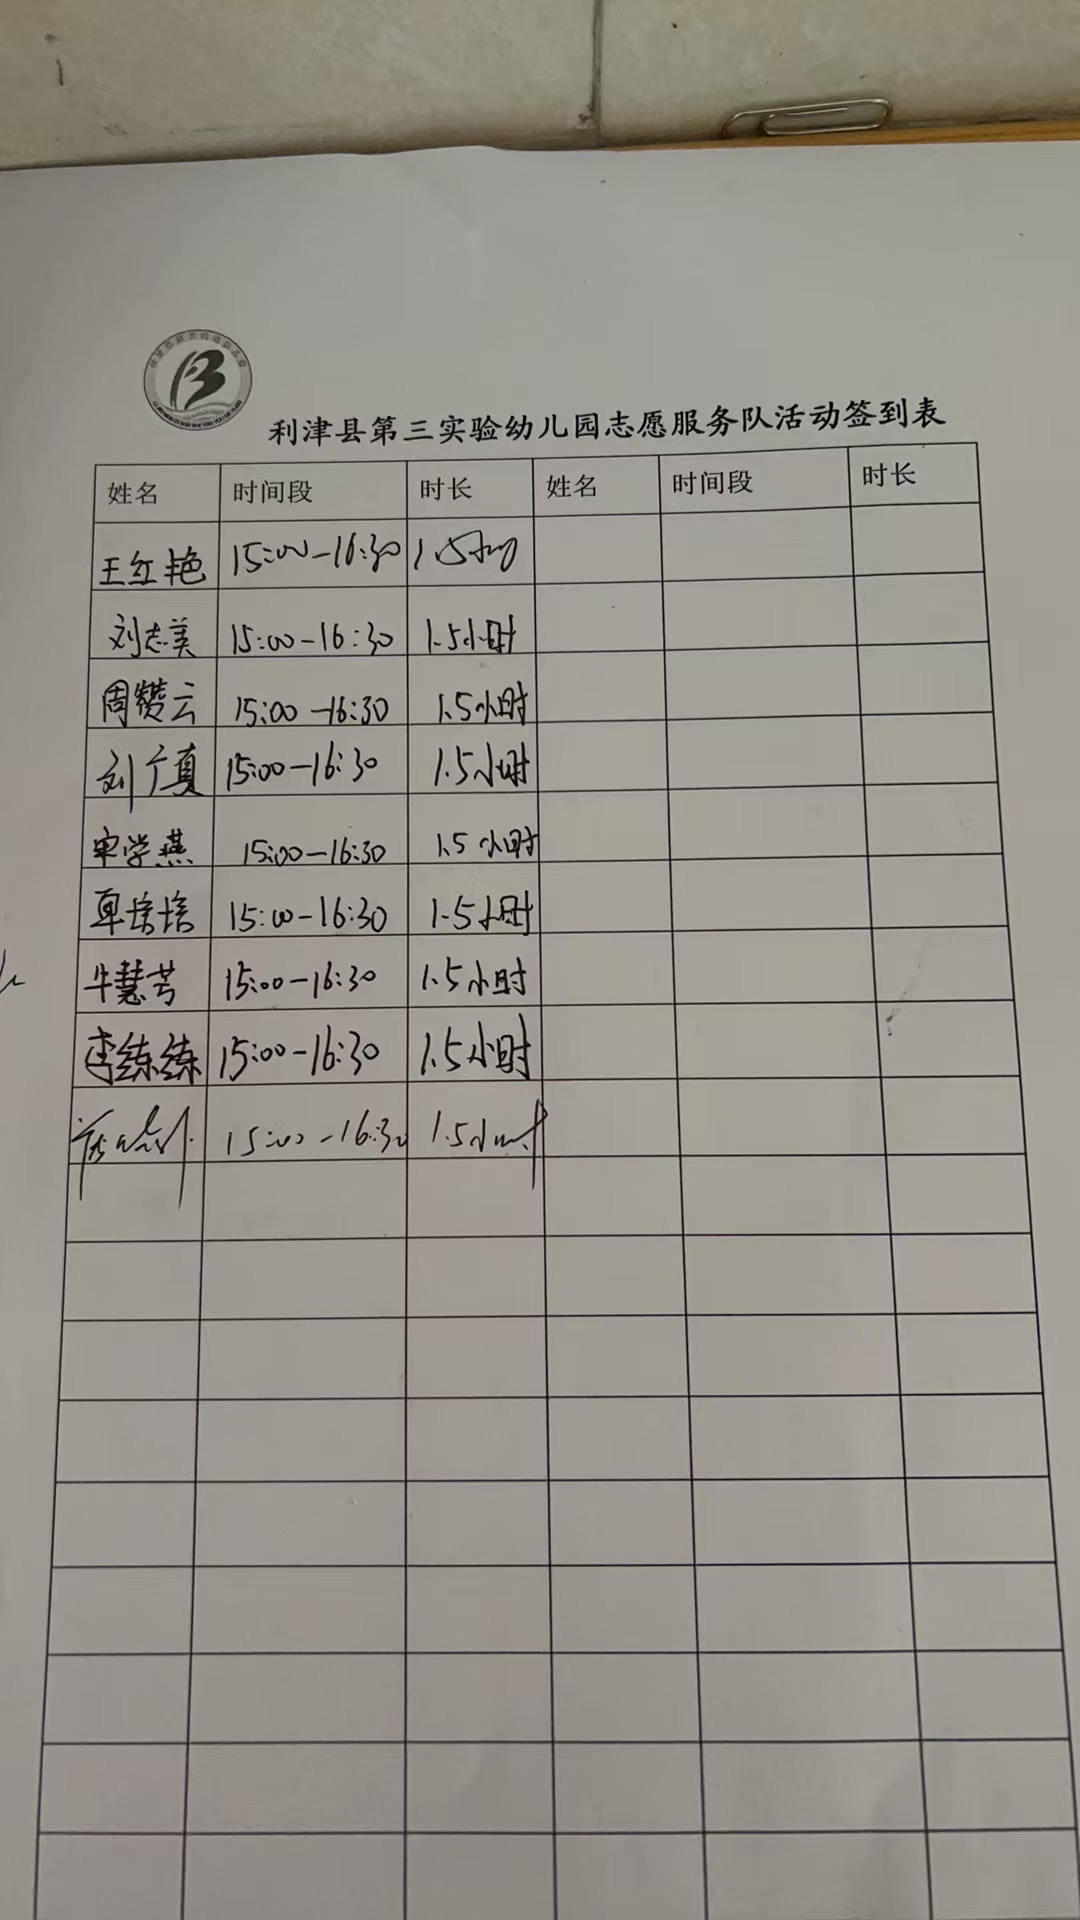 利津县第三实验幼儿园志愿服务队活动签到表
姓名 时间段 时长 姓名 时间段 时长
王红艳 15:00-16:30 1.5小时
刘志美 15:00-16:30 1.5小时
周赞云 15:00-16:30 1.5小时
刘广真 15:00-16:30 1.5小时
宋学燕 15:00-16:30 1.5小时
覃培培 15:00-16:30 1.5小时
牛慧芳 15:00-16:30 1.5小时
李练练 15:00-16:30 1.5小时
15:00-16:30 1.5小时